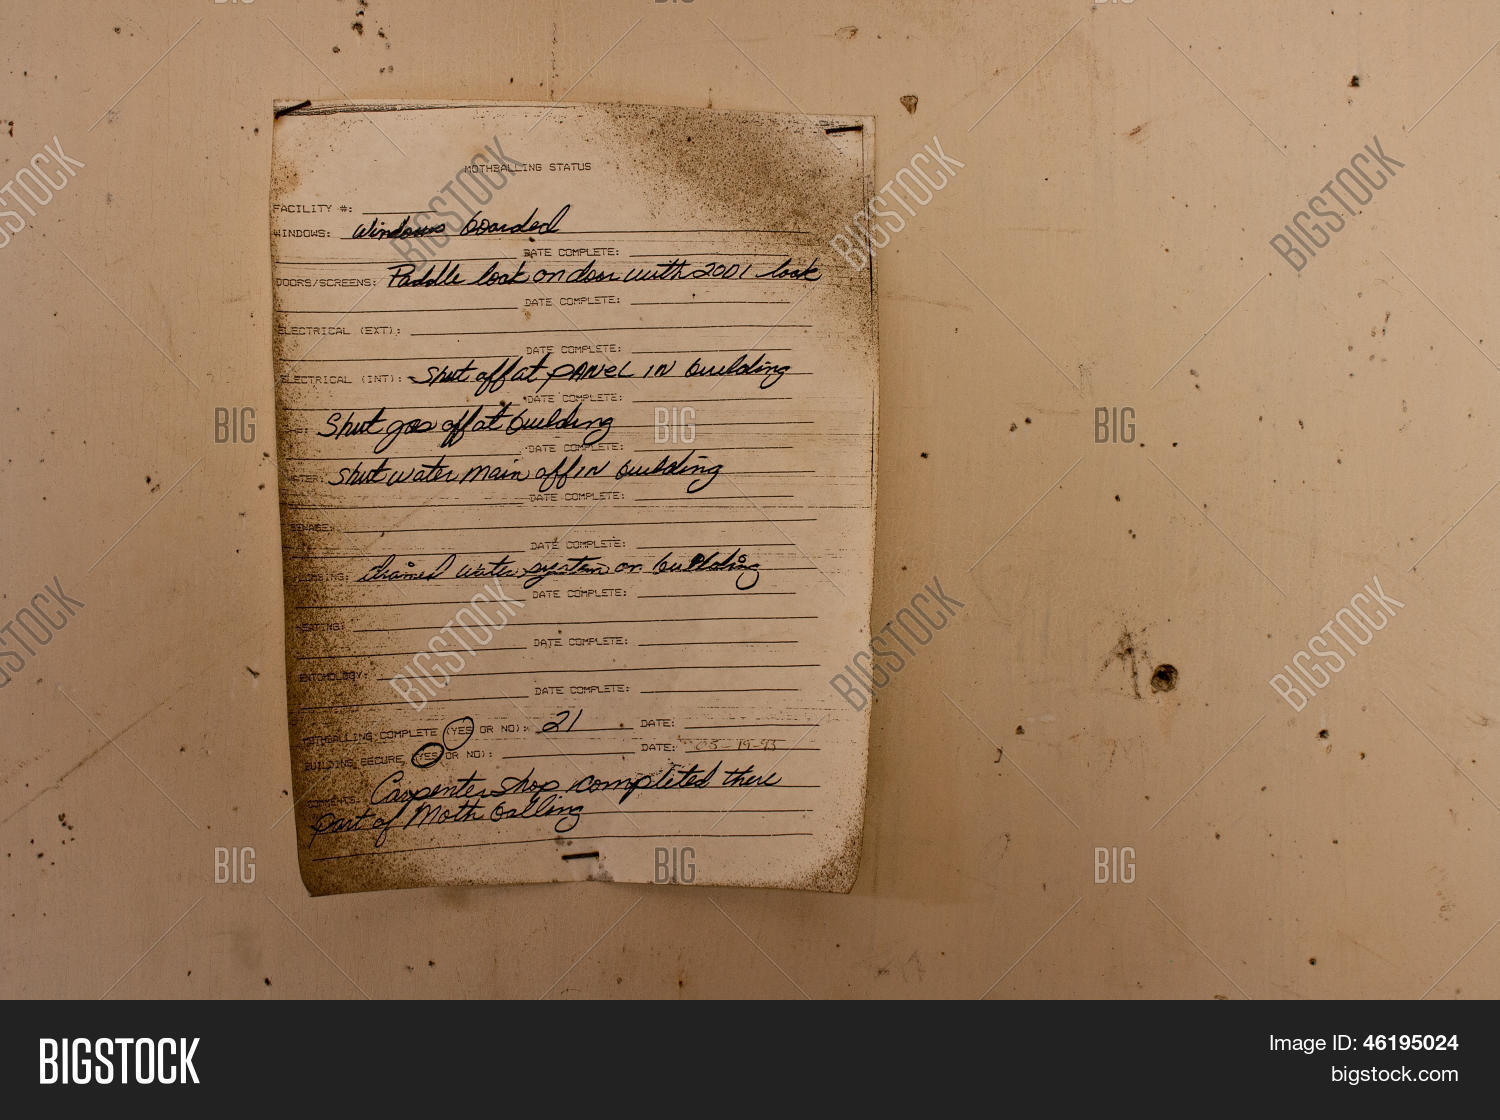 MOTHBALLING STATUS
FACILITY #:
WINDOWS: Windows boarded
DATE COMPLETE:
DOORS/SCREENS: Paddle lock on door with 2001 lock
DATE COMPLETE:
ELECTRICAL (EXT):
DATE COMPLETE:
ELECTRICAL (INT): Shut off at PANEL IN building
DATE COMPLETE:
Shut gas off at building
DATE COMPLETE:
WATER: Shut water main off IN building
DATE COMPLETE:
SEWAGE:
DATE COMPLETE:
drained water system on building
DATE COMPLETE:
HEATING:
DATE COMPLETE:
ENTOMOLOGY:
DATE COMPLETE:
MOTHBALLING COMPLETE (YES OR NO): 21 DATE:
BUILDING SECURE (YES OR NO): DATE: 03-19-93
COMMENTS: Carpenter shop completed there
part of Moth balling
BIGSTOCK
Image ID: 46195024
bigstock.com